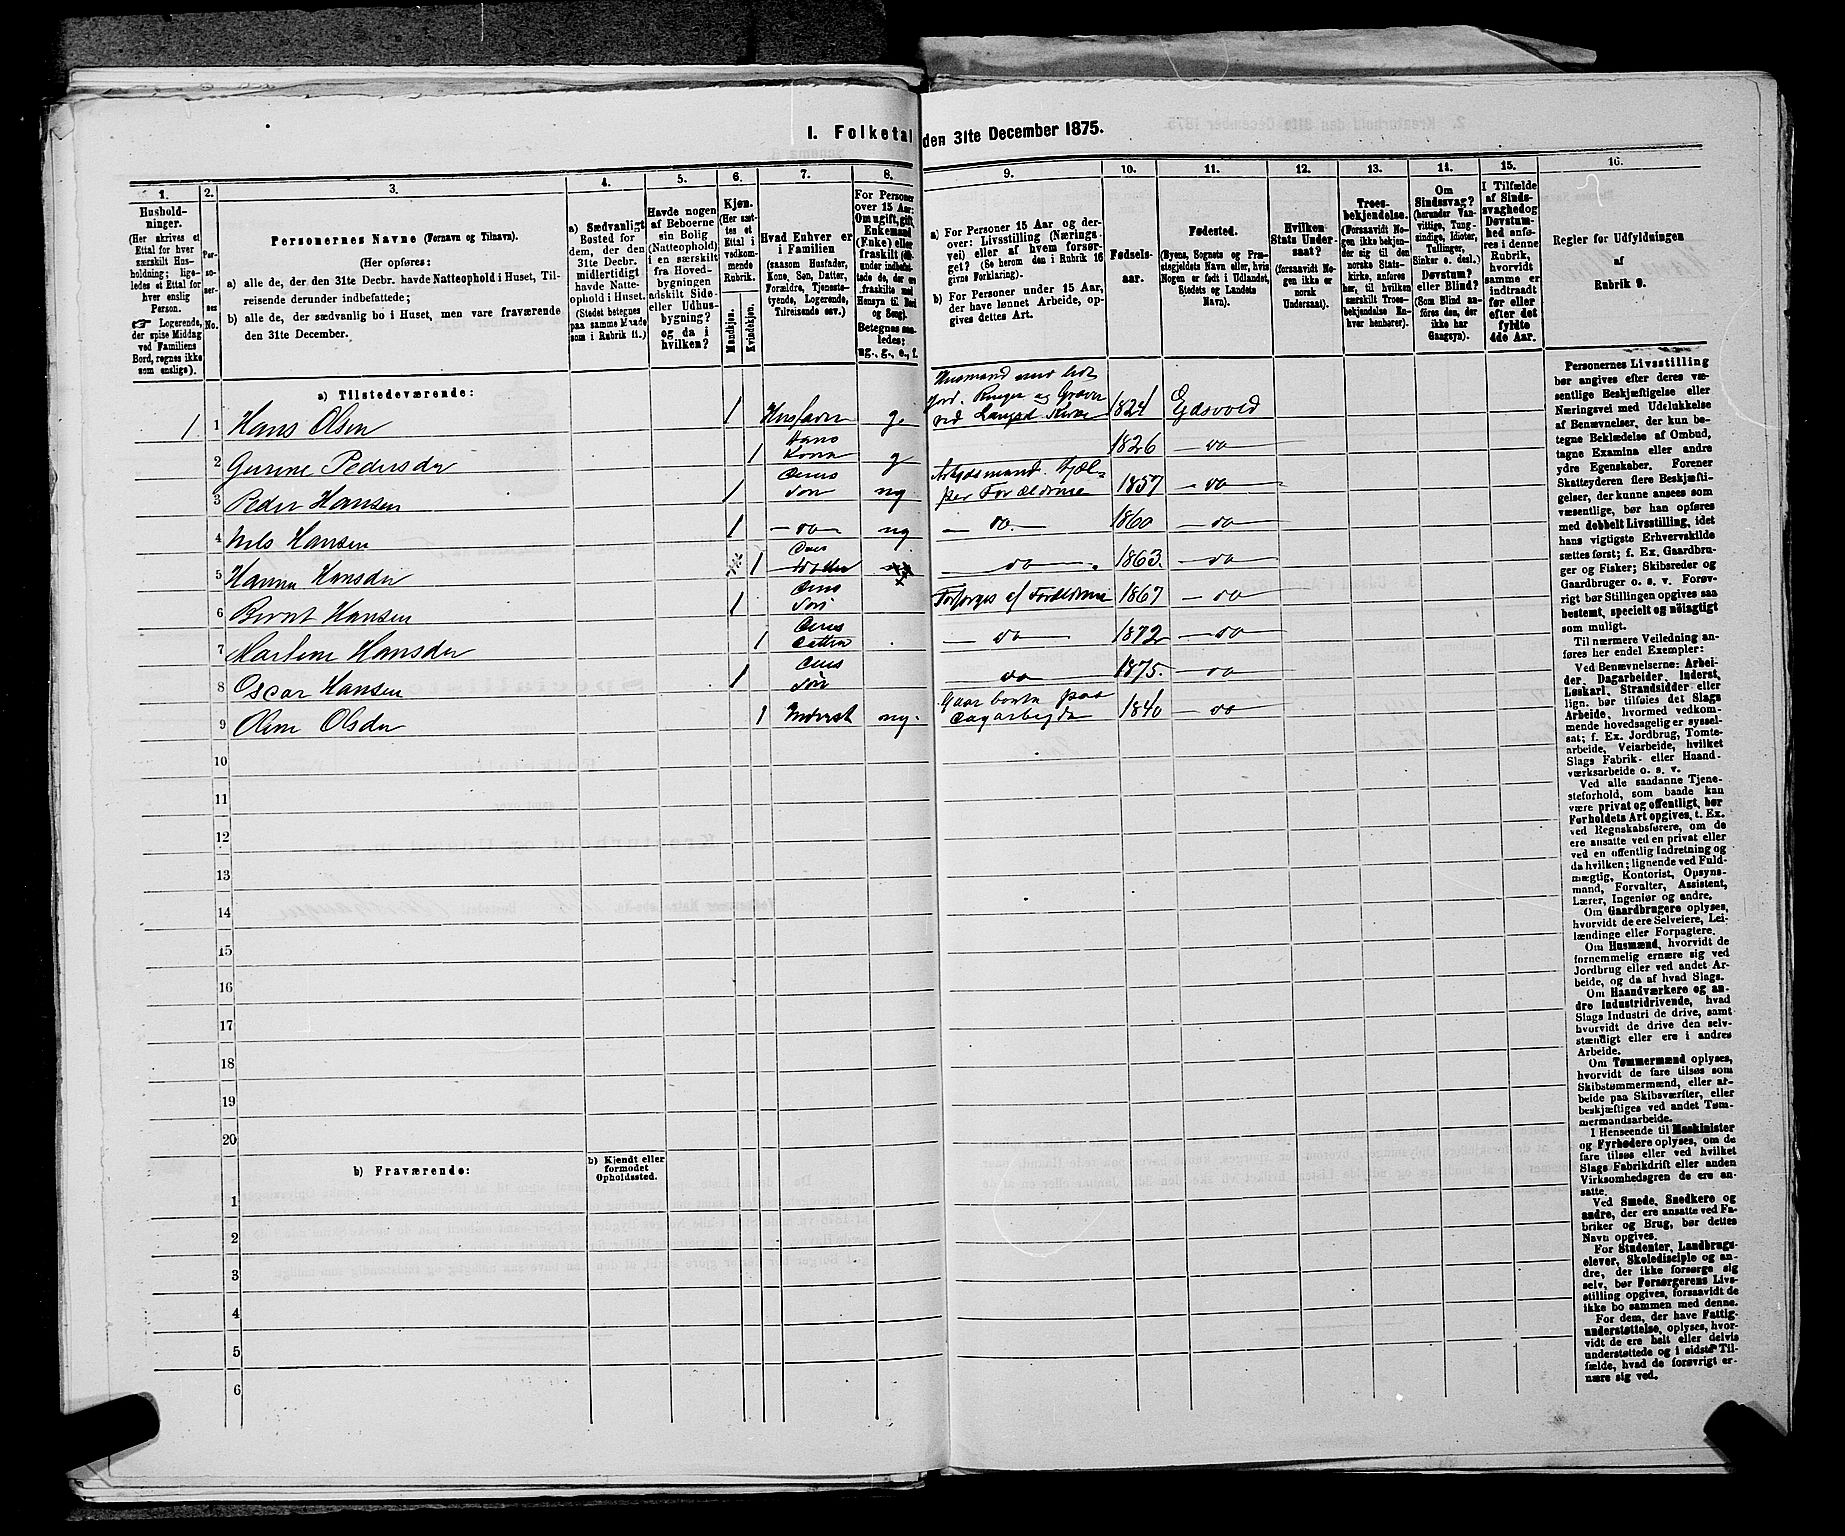 I. Folketal den 31te December 1875.
1. 2. 3. 4. 5. 6. 7. 8. 9. 10. 11. 12. 13. 14. 15. 16.
Hushold-
ninger.
(Her skrives et
Ettal for hver
særskilt Hus-
holdning; lige-
ledes et Ettal for
hver enslig
Person.
☞ Logerende,
der spise Middag
ved Familiens
Bord, regnes ikke
som enslige).
Per-
so-
ner-
nes
No.
Personernes Navne (Fornavn og Tilnavn).
(Her opføres:
a) alle de, der den 31te Decbr. havde Natteophold i Huset, Til-
reisende derunder indbefattede;
b) alle de, der sædvanlig bo i Huset, men vare fraværende
den 31te December.
a) Sædvanligt
Bosted for
dem, der den
31te Decbr.
midlertidigt
havde Natte-
ophold i Huset.
(Stedet betegnes
paa samme Maade
som i Rubrik 11.)
Havde nogen
af Beboerne
sin Bolig
(Natteophold)
i en særskilt
fra Hoved-
bygningen
adskilt Side-
eller Udhus-
bygning?
og da i
hvilken?
Kjøn.
(Her sæt-
tes et
Ettal i
vedkom-
mende
Rubrik.
Mandkjøn.
Kvindekjøn.
Hvad Enhver er
i Familien
(saasom Husfader,
Kone, Søn, Datter,
Forældre, Tjeneste-
tyende, Logerende,
Tilreisende osv.)
For Personer
over 15 Aar:
Om ugift, gift,
Enkemand
(Enke) eller
fraskilt
Betegnes saa-
ledes:
ug., g., e., f.
a) For Personer 15 Aar og der-
over: Livsstilling (Nærings-
vei) eller af hvem forsør-
get? (Se herom den i Rubrik 16
givne Forklaring).
b) For Personer under 15 Aar,
der have lønnet Arbeide, op-
gives dettes Art.
Fødsels-
aar.
Fødested.
(Byens, Sognets og Præ-
stegjeldets Navn eller, hvis
Nogen er født i Udlandet,
Stedets og Landets
Navn).
Hvilken
Stats Under-
saat?
(forsaavidt No-
gen ikke er
norsk
Undersaat).
Troes-
bekjendelse.
(Forsaavidt No-
gen ikke bekjen-
der sig til den
norske Stats-
kirke, anføres
her, til hvilken
særskilt Troes-
bekjendelse En-
hver henhører).
Om
Sindssvag?
(herunder Van-
vittige, Tung-
sindige, Idioter,
Tullinger,
Sinker o. desl.)
Døvstum?
eller Blind?
(Som Blind an-
føres den, der
ikke har
Gangsyn).
I Tilfælde
af Sinds-
svaghed og
Døvstum-
hed anfø-
res i denne
Rubrik,
hvorvidt
samme er
indtraadt
før eller
efter det
fyldte
4de Aar.
Regler for Udfyldningen
af
Rubrik 9.
a) Tilstedeværende:
Husmand med lidt
Jord. Ringer og Graver
1 1 Hans Olsen 1 Husfader g. ved Langset Kirke 1824 Eidsvold
Hans
2 Gurine Pedersdr 1 Kone g 1826 — do —
Deres Arbeidsmand. Hjæl-
3 Peder Hansen 1 Søn ug per Forældrene 1857 — do —
4 Nils Hansen 1 — do — ug — do — 1860 — do —
Deres
5 Hanna Hansdr 1 Datter — do — 1863. — do —
Deres
6 Bernt Hansen 1 Søn Forsørges af Forældrene 1867 — do —
Deres
7 Martine Hansdr 1 Datter — do — 1872 — do —
Deres
8 Oscar Hansen 1 Søn — do — 1875. — do —
Gaar borte paa
9 Oline Olsdr 1 Inderst ug. Dagarbeyde 1840 — do —
10
11
12
13
14
15
16
17
18
19
20
b) Fraværende:
b) Kjendt eller
formodet
Opholdssted.
1
2
3
4
5
6
Personernes Livsstilling
bør angives efter deres væ-
sentlige Beskjæftigelse eller
Næringsvei med Udelukkelse
af Benævnelser, der kun be-
tegne Beklædelse af Ombud,
tagne Examina eller andre
ydre Egenskaber. Forener
Skatteyderen flere Beskjæfti-
gelser, der kunne ansees som
væsentlige, bør han opføres
med dobbelt Livsstilling, idet
hans vigtigste Erhvervskilde
sættes først; f. Ex. Gaardbru-
ger og Fisker; Skibsreder og
Gaardbruger o. s. v. Forøv-
rigt bør Stillingen opgives saa
bestemt, specielt og nøiagtigt
som muligt.
Til nærmere Veiledning an-
føres her endel Exempler:
Ved Benævnelserne: Arbei-
der, Dagarbeider, Inderst,
Løskarl, Strandsidder eller
lign. bør tilføies det Slags
Arbeide, hvormed vedkom-
mende hovedsagelig er syssel-
sat; f. Ex. Jordbrug, Tomte-
arbeide, Veiarbeide, hvilket
Slags Fabrik- eller Haand-
værksarbeide o. s. v.
Ved alle saadanne Tjene-
steforhold, som baade kan
være privat og offentligt, bør
Forholdets Art opgives, t. Ex.
ved Regnskabsførere, om de
ere ansatte ved en privat eller
ved en offentlig Indretning og
da hvilken; lignende ved Fuld-
mægtig, Kontorist, Opsyns-
mand, Forvalter, Assistent,
Lærer, Ingeniør og andre.
Om Gaardbrugere oplyses,
hvorvidt de ere Selveiere, Lei-
lændinge eller Forpagtere.
Om Husmænd, hvorvidt de
fornemmelig ernære sig ved
Jordbrug eller ved andet Ar-
beide, og da af hvad Slags.
Om Haandværkere og an-
dre Industridrivende, hvad
Slags Industri de drive, samt
hvorvidt de drive den selv-
stændigt eller ere i andres
Arbeide.
Om Tømmermænd oplyses,
hvorvidt de fare tilsøs som
Skibstømmermænd, eller ar-
beide paa Skibsværfter, eller
beskjæftiges ved andet Tøm-
mermandsarbeide.
I Henseende til Maskinister
og Fyrbødere oplyses, om de
fare tilsøs eller ved hvilket
Slags Fabrikdrift eller anden
Virksomhedsgren de ere an-
satte.
Ved Smede, Snedkere og
andre, der ere ansatte ved Fa-
briker og Brug, bør dettes
Navn opgives.
For Studenter, Landbrugs-
elever, Skoledisciple og an-
dre, der ikke forsørge sig
selv, bør Forsørgerens Livs-
stilling opgives, forsaavidt de
ikke bo sammen med denne.
For dem, der have Fattig-
understøttelse, oplyses, hvor-
vidt de ere helt eller delvis
understøttede og i sidste Til-
fælde, hvad de forøvrigt er-
nære sig ved.